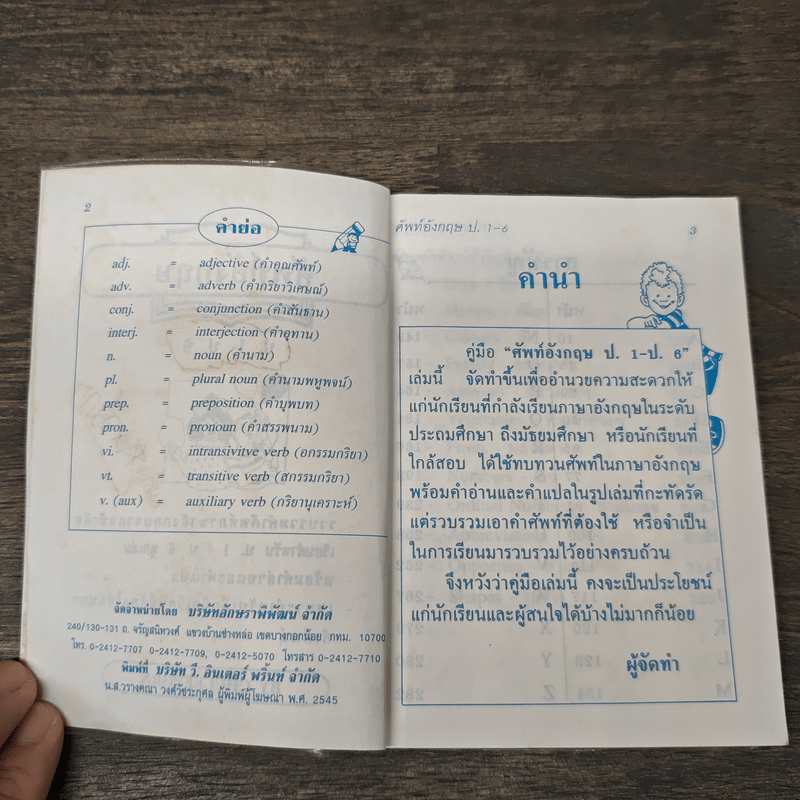 2
คำย่อ
adj. = adjective (คำคุณศัพท์)
adv. = adverb (คำกริยาวิเศษณ์)
conj. = conjunction (คำสันธาน)
interj. = interjection (คำอุทาน)
n. = noun (คำนาม)
pl. = plural noun (คำนามพหูพจน์)
prep. = preposition (คำบุพบท)
pron. = pronoun (คำสรรพนาม)
vi. = intransivitve verb (อกรรมกริยา)
vt. = transitive verb (สกรรมกริยา)
v. (aux) = auxiliary verb (กริยานุเคราะห์)
จัดจำหน่ายโดย บริษัทอักษราพิพัฒน์ จำกัด
240/130-131 ถ. จรัญสนิทวงศ์ แขวงบ้านช่างหล่อ เขตบางกอกน้อย กทม. 10700
โทร. 0-2412-7707 0-2412-7709, 0-2412-5070 โทรสาร 0-2412-7710
พิมพ์ที่ บริษัท วี. อินเตอร์ พริ้นท์ จำกัด
น.ส.วรางคณา วงศ์วัชระกุศล ผู้พิมพ์ผู้โฆษณา พ.ศ. 2545
ศัพท์อังกฤษ ป. 1-6
3
คำนำ
คู่มือ “ศัพท์อังกฤษ ป. 1-ป. 6”
เล่มนี้ จัดทำขึ้นเพื่ออำนวยความสะดวกให้
แก่นักเรียนที่กำลังเรียนภาษาอังกฤษในระดับ
ประถมศึกษา ถึงมัธยมศึกษา หรือนักเรียนที่
ใกล้สอบ ได้ใช้ทบทวนศัพท์ในภาษาอังกฤษ
พร้อมคำอ่านและคำแปลในรูปเล่มที่กะทัดรัด
แต่รวบรวมเอาคำศัพท์ที่ต้องใช้ หรือจำเป็น
ในการเรียนมารวบรวมไว้อย่างครบถ้วน
จึงหวังว่าคู่มือเล่มนี้ คงจะเป็นประโยชน์
แก่นักเรียนและผู้สนใจได้บ้างไม่มากก็น้อย
ผู้จัดทำ